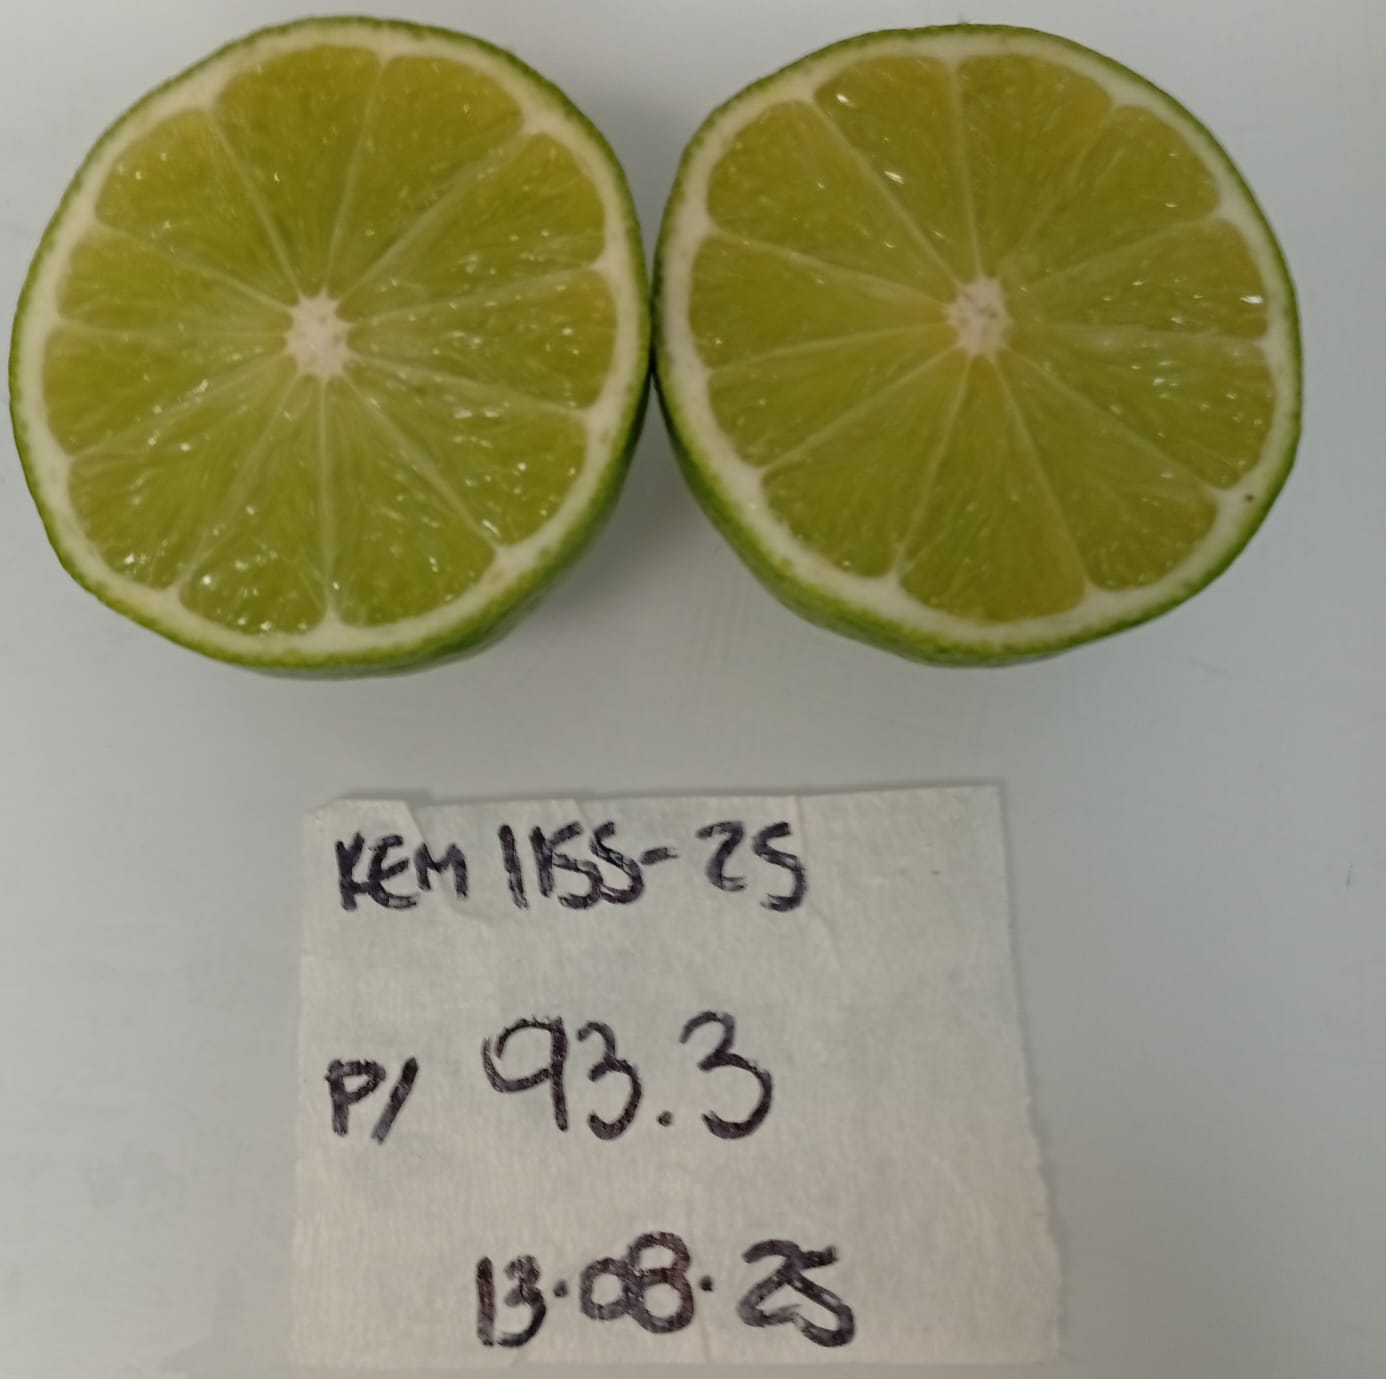 KEM 1155-25
P/ 93.3
13.08.25